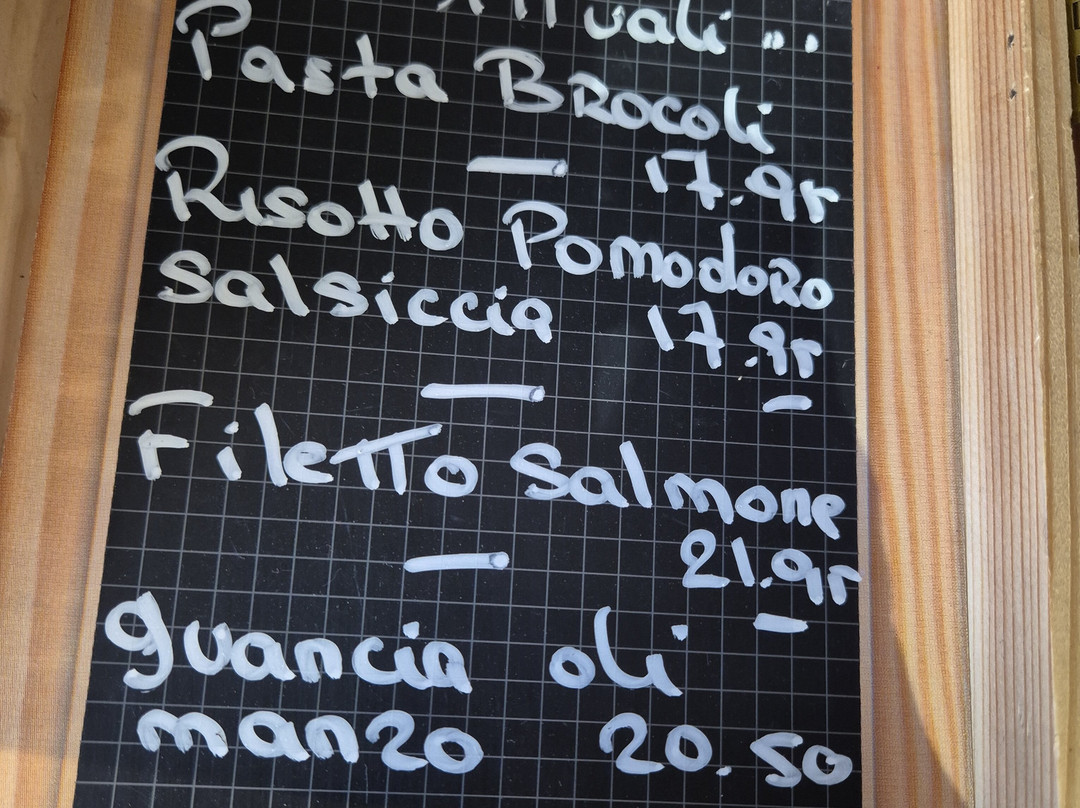 Pasta BRocoli
— 17.95
Risotto PomodoRo
salsiccia 17.95
—
Filetto salmone
— 21.95
guancia di
manzo 20.50